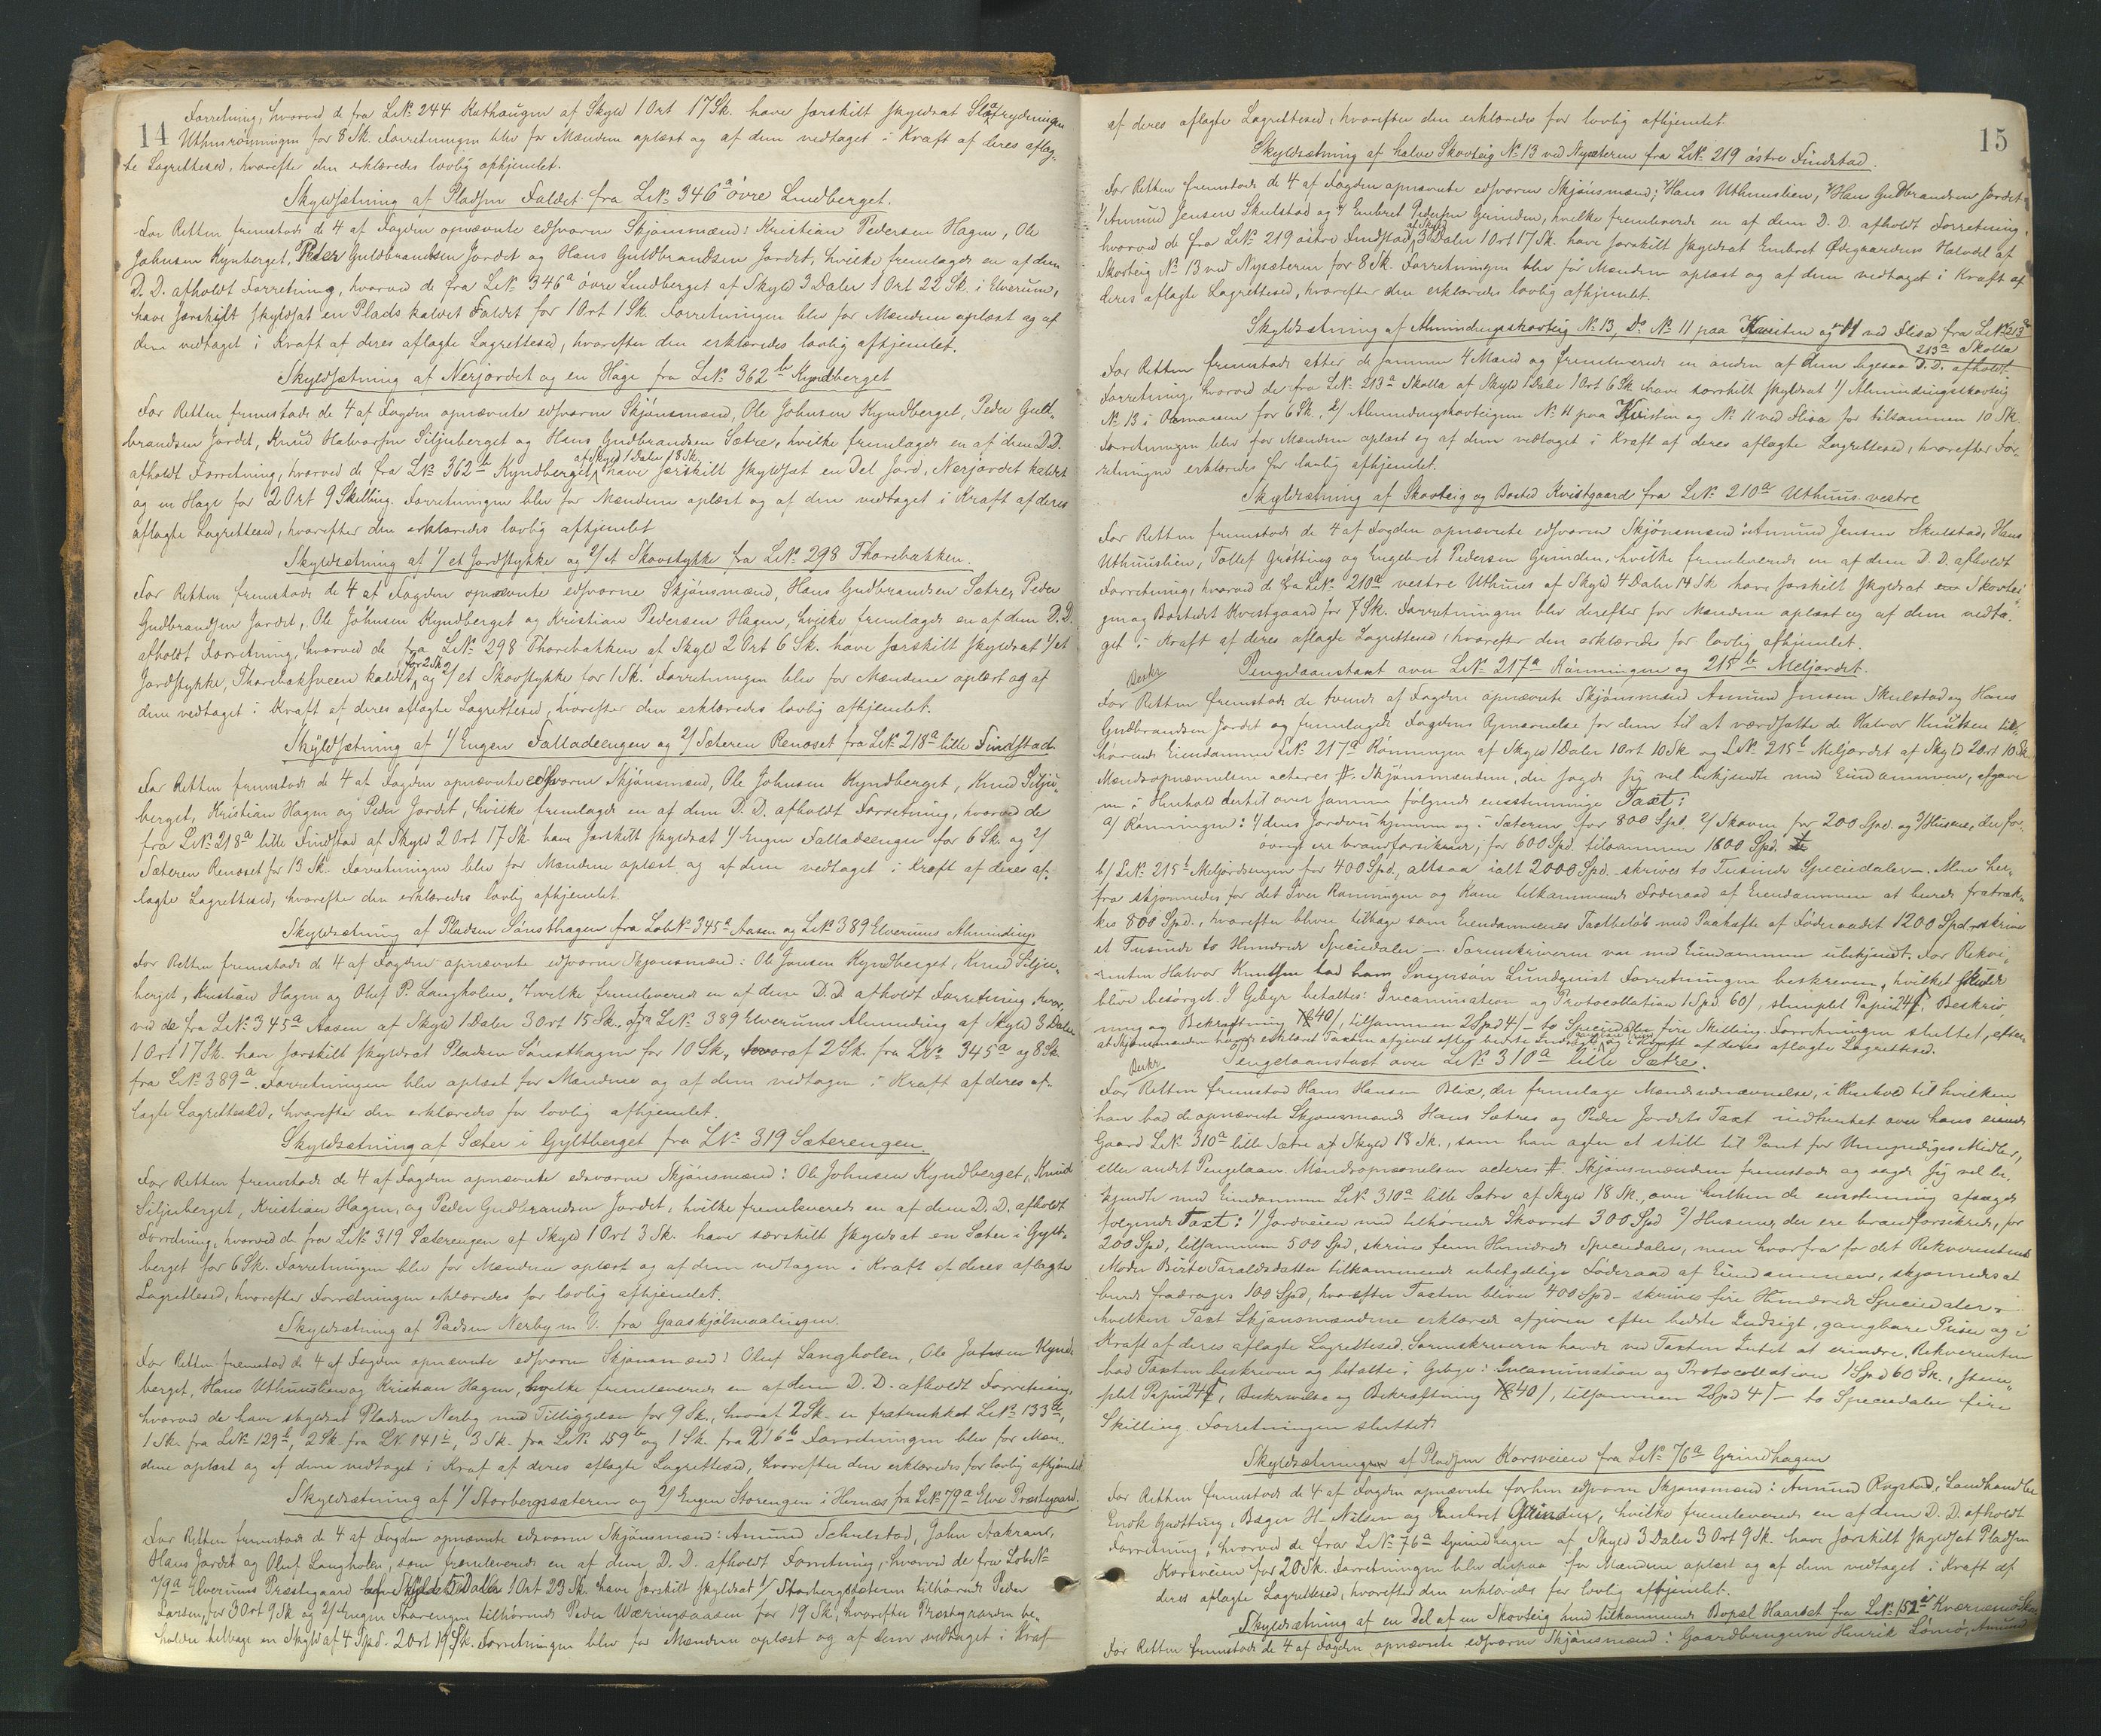 14
Forretning, hvorved de fra LNo 244 Kathaugen af Skyld 1 Ort 17 Sk. have særskilt skyldsat Slaatrydningen
Uthusrønningen for 8 Sk. Forretningen blev for Mændene oplæst og af dem vedtaget i Kraft af deres aflag-
te Lagrettesed, hvorefter den erklæredes lovlig afhjemlet.
Skyldsætning af Pladsen Faldet fra LNo 346a øvre Lindberget.
For Retten fremstod de 4 af Fogden opnævnte edsvorne Skjønsmænd: Kristian Pedersen Hagen, Ole
Johnsen Kynberget, Peder Guldbrandsen Jordet og Hans Guldbrandsen Jordet, hvilke fremlagde en af dem
D. D. afholdt Forretning, hvorved de fra LNo 346a øvre Lindberget af Skyld 3 Daler 1 Ort 22 Sk. i Elverum,
have særskilt skyldsat en Plads kaldet Faldet for 1 Ort 1 Sk. Forretningen blev for Mændene oplæst og af
dem vedtaget i Kraft af deres aflagte Lagrettesed, hvorefter den erklæredes lovlig afhjemlet.
Skyldsætning af Nerjordet og en Hage fra LNo 362b Kyndberget
For Retten fremstod de 4 af Fogden opnævnte edsvorne Skjønsmænd, Ole Johnsen Kyndberget, Peder Guld-
brandsen Jordet, Knud Halvorsen Siljuberget og Hans Gudbrandsen Sætre, hvilke fremlagde en af dem D.D.
afholdt Forretning, hvorved de fra LNo 362b Kyndberget af Skyld 1 Daler 18 Sk. have særskilt skyldsat en Del Jord, Nerjordet kaldet
og en Hage for 2 Ort 9 Skilling. Forretningen blev for Mændene oplæst og af dem vedtaget i Kraft af deres
aflagte Lagrettesed, hvorefter den erklæredes lovlig afhjemlet
Skyldsætning af 1/ et Jordstykke og 2/ et Skovstykke fra LNo 298 Thorebakken.
For Retten fremstod de 4 af Fogden opnævnte edsvorne Skjønsmænd, Hans Gudbrandsen Sætre, Peder
Gudbrandsen Jordet, Ole Johnsen Kyndberget og Kristian Pedersen Hagen, hvilke fremlagde en af dem D. D.
afholdt Forretning, hvorved de fra LNo 298 Thorebakken af Skyld 2 Ort 6 Sk. have særskilt skyldsat 1/ et
Jordstykke, Thorebaksveen kaldet, for 2 Sk. og 2/ et Skovstykke for 1 Sk. Forretningen blev for Mændene oplæst og af
dem vedtaget i Kraft af deres aflagte Lagrettesed, hvorefter den erklæredes lovlig afhjemlet.
Skyldsætning af 1/ Engen Falladeengen og 2/ Sæteren Renaset fra LNo 218a lille Findstad
For Retten fremstod de 4 af Fogden opnævnte edsvorne Skjønsmænd, Ole Johnsen Kyndberget, Knud Silju-
berget, Kristian Hagen og Peder Jordet, hvilke fremlagde en af dem D. D. afholdt Forretning, hvorved de
fra LNo 218a lille Findstad af Skyld 2 Ort 17 Sk. have særskilt skyldsat 1/ Engen Falladeengen for 6 Sk. og 2/
Sæteren Renoset for 13 Sk. Forretningen blev for Mændene oplæst og af dem vedtaget i Kraft af deres af-
lagte Lagrettesed, hvorefter den erklæredes lovlig afhjemlet.
Skyldsætning af Pladsen Sønsthagen fra LøbNo 345a Aasen og LNo 389 Elverums Alminding.
For Retten fremstod de 4 af Fogden opnævnte edsvorne Skjønsmænd: Ole Jonsen Kyndberget, Knud Silju-
berget, Kristian Hagen og Oluf P. Langholen, hvilke fremleverede en af dem D. D. afholdt Forretning, hvor-
ved de fra LNo 345a Aasen af Skyld 1 Daler 3 Ort 15 Sk. og fra LNo 389 Elverums Alminding af Skyld 3 Daler
1 Ort 17 Sk. have særskilt skyldsat Pladsen Sønsthagen for 10 Sk., hvoraf 2 Sk. fra LNo 345a og 8 Sk.
fra LNo 389a. Forretningen blev oplæst for Mændene og af dem vedtagen i Kraft af deres af-
lagte Lagrettesed, hvorefter den erklæredes for lovlig afhjemlet.
Skyldsætning af Sæter i Gyltberget fra LNo 319 Sæterengen.
For Retten fremstod de 4 af Fogden opnævnte edsvorne Skjønsmænd: Ole Johnsen Kyndberget, Knud
Siljuberget, Kristian Hagen, og Peder Gudbrandsen Jordet, hvilke fremleverede en af dem D. D. afholdt
Forretning, hvorved de fra LNo 319 Sæterengen af Skyld 1 Ort 3 Sk. have særskilt skyldsat en Sæter i Gylt-
berget for 6 Sk. Forretningen blev for Mændene oplæst og af dem vedtagen i Kraft af deres aflagte
Lagrettesed, hvorefter Forretningen erklæredes for lovlig afhjemlet.
Skyldsætning af Padsen Nerby m. V. fra Gaaskjølmaalingen.
For Retten fremstod de 4 af Fogden opnævnte edsvorne Skjønsmænd: Oluf Langholen, Ole Johnsen Kynd-
berget, Hans Uthuuslien og Kristian Hagen, hvilke fremleverede en af dem D. D. afholdt Forretning,
hvorved de have skyldsat Pladsen Nerby med Tilliggelse for 9 Sk., hvoraf 2 Sk. er fratrukket LNo 133
1 Sk. fra LNo 129b, 2 Sk. fra LNo 141i, 3 Sk. fra LNo 159b og 1 Sk. fra 216b. Forretningen blev for Mæn-
dene oplæst og af dem vedtaget i Kraf af deres aflagte Lagrettesed, hvorefter den erklæredes for lovlig afhjemlet
Skyldsætning af 1/ Storbergssæteren og 2/ Engen Storengen i Hernæs fra LNo 79a Elve Præstegaard.
For Retten fremstod de 4 af Fogden opnævnte edsvorne Skjønsmænd: Amund Schulstad, John Aakrann,
Hans Jordet og Oluf Langholen, som fremleverede en af dem D. D. afholdt Forretning, hvorved de fra LøbNo
79a Elverums Præstegaard af Skyld 5 Daler 1 Ort 23 Sk. have særskilt skyldsat 1/ Storbergssæteren tilhørende Peder
Larsen, for 3 Ort 9 Sk og 2/ Engen Storengen tilhørende Peder Wæringsaasen for 19 Sk., hvorefter Præstegaarden be-
holder tilbage en Skyld af 4 Spd. 2 Ort 19 Sk. Forretningen blev for Mændene oplæst og af dem vedtaget i Kraf
15
af deres aflagte Lagrettesed, hvorefter den erklæredes for lovlig afhjemlet.
Skyldsætning af halve Skovteig No 13 ved Nysæteren fra LNo 219 østre Findstad.
For Retten fremstod de 4 af Fogden opnævnte edsvorne Skjønsmænd; Hans Uthuuslien, Hans Guldbrandsen Jordet
Amund Jensen Skulstad og Embret Pedersen Grinden, hvilke fremleverede en af dem D. D. afholdt Forretning,
hvorved de fra LNo 219 østre Findstad af Skyld 3 Daler 1 Ort 17 Sk. have særskilt skyldsat Embret Ødegaardens Halvdel af
Skovteig No 13 ved Nysæteren for 8 Sk. Forretningen blev for Mændene oplæst og af dem vedtaget i Kraft af
deres aflagte Lagrettesed, hvorefter den erklæredes lovlig afhjemlet.
Skyldsætning af Almindingsskovteig No 13, Do No 11 paa Kvisten og 11 ved Flisa, fra LNo 213a
213a Skolla
For Retten fremstod atter de samme 4 Mænd og fremleverede en anden af dem ligesaa D. D. afholdt
Forretning, hvorved de fra LNo 213a Skolla af Skyld 1 Daler 1 Ort 6 Sk have særskilt skyldsat 1/ Almindingsskovteig
No 13 i for 6 Sk., 2/ Almindingskovteigene No 11 paa Kvisten og No 11 ved Flisa for tilsammen 10 Sk.
Forretningen blev for Mændene oplæst og af dem vedtaget i Kraft af deres aflagte Lagrettesed, hvorefter For-
retningen erklæredes for lovlig afhjemlet.
Skyldsætning af Skovteig og Bosted Kvistgaard fra LNo 210a Uthuus vestre
For Retten fremstod de 4 af Fogden opnævnte edsvorne Skjønsmænd: Amund Jensen Skulstad, Hans
Uthuuslien, Tollef Grøtting og Engebret Pedersen Grinden, hvilke fremleverede en af dem D. D. afholdt
Forretning, hvorved de fra LNo 210a vestre Uthuus af Skyld 4 Daler 14 Sk have særskilt skyldsat en Skovtei-
gen og Bostedet Kvistgaard for 7 Sk. Forretningen blev derefter for Mændene oplæst og af dem vedta-
get i Kraft af deres aflagte Lagrettesed, hvorefter den erklæredes for lovlig afhjemlet.
Beskr.
Pengelaanstaxt over LNo 217a Rønningen og 215b Meljordet.
For Retten fremstod de tvende af Fogden opnævnte Skjønsmænd Amund Jensen Skulstad og Hans
Gudbrandsen Jordet og fremlagde Fogdens Opnævnelse for dem til at værdsætte de Halvor Knutsen til-
hørende Eiendomme LNo 217a Rønningen af Skyld 1 Daler 1 Ort 10 Sk og LNo 215b Meljordet af Skyld 2 Ort 10 Sk.
Mændsopnævnelsen acteres #. Skjønsmændene, der sagde sig vel bekjendte med Eiendommene, afgave
nu i Henhold dertil over samme følgende eensstemmige Taxt:
a/ Rønningen: 1/ dens Jordvei hjemme og i Sæteren, for 800 Spd. 2/ Skoven for 200 Spd. og 3/ Husene, der for-
øvrigt ere brandforsikrede, for 600 Spd. tilsammen 1600 Spd.
b/ LNo 215b Meljordsengen for 400 Spd., altsaa ialt 2000 Spd. skrives to Tusinde Speciedaler —. Men her-
fra skjønnedes for det Iver Rønningen og Kone tilkommende Føderaad af Eiendommene at burde fratræk-
kes 800 Spd., hvorefter bliver tilbage som Eiendommenes Taxtbeløb med Paahæfte af Føderaadet 1200 Spd. skriver
et Tusinde to Hundrede Speciedaler —. Sorenskriveren var med Eiendommene ubekjendt. For Rekvi-
renten Halvor Knutsen bad hans Svigersøn Lundquist Forretningen beskreven, hvilket skulde
blive besørget. I Gebyr betaltes: Incamination og Protocollation 1 Spd. 60/, stemplet Papir 24/, Beskriv-
ning og Bekræftning 40/, tilsammen 2 Spd 4/ – to Speciedaler fire Skilling. Forretningen sluttet, efter
at Skjønsmændene havde erklæret Taxten afgivet efter bedste Indsigt, og i Kraft af deres aflagte Lagrettesed.
Beskr
Pengelaanstaxt over LNo 310a lille Sætre.
For Retten fremstod Hans Hansen Blix, der fremlagde Mændsudnævnelse, i Henhold til hvilken
han bad de opnævnte Skjønsmænds Hans Sætres og Peder Jordets Taxt indhentet over hans eiende
Gaard LNo 310a lille Sætre af Skyld 18 Sk., som han agter at stille til Pant for Umyndiges Midler,
eller andet Pengelaan. Mændsopnævnelsen acteres #. Skjønsmændene fremstode og sagde sig vel be-
kjendte med Eiendommen LNo 310a lille Sætre af Skyld 18 Sk., over hvilken de eensstemmig afsagde
følgende Taxt: 1/ Jordveien med tilhørende Skovret 300 Spd 2/ Husene, der ere brandforsikrede, for
200 Spd, tilsammen 500 Spd, skrives fem Hundrede Speciedaler, men hvorfra for det Rekvirentens
Moder Birte Taraldsdatter tilkommende ubetydelige Føderaad af Eiendommen, skjønnedes at
burde fradrages 100 Spd, hvorefter Taxten bliver 400 Spd – skrives fire Hundrede Speciedaler –
hvilken Taxt Skjønsmændene erklærede afgiven efter bedste Indsigt, gangbare Priser og i
Kraft af deres aflagte Lagrettesed. Sorenskriveren havde ved Taxten Intet at erindre. Rekvirenten
bad Taxten beskreven og betalte i Gebyr: Incamination og Protocollation 1 Spd 60 Sk., stem-
plet Papir 24/, Beskrivelse og Bekræftning 40/, tilsammen 2 Spd 4/ – to Speciedaler fire
Skilling. Forretningen sluttet.
Skyldsætningen af Pladsen Korsveien fra LNo 76a Grindhagen
For Retten fremstod de 4 af Fogden opnævnte forhen edsvorne Skjønsmænd: Amund Rogstad, Landhandler
Enok Gudttung, Bager H. Nilsen og Embret Grinden, hvilke fremleverede en af dem D. D. afholdt
Forretning, hvorved de fra LNo 76a Grindhagen af Skyld 3 Daler 3 Ort 9 Sk. have særskilt skyldsat Pladsen
Korsveien for 20 Sk. Forretningen blev derpaa for Mændene oplæst og af dem vedtaget i Kraft af
deres aflagte Lagrettesed, hvorefter den erklæredes for lovlig afhjemlet.
Skyldsætning af en Del af en Skovteig med tilkommende Bopæl Haarset fra LNo 151a Kværnemo
For Retten fremstod de 4 af Fogden opnævnte edsvorne Skjønsmænd: Gaardbrugerne Henrik Lømo, Amund